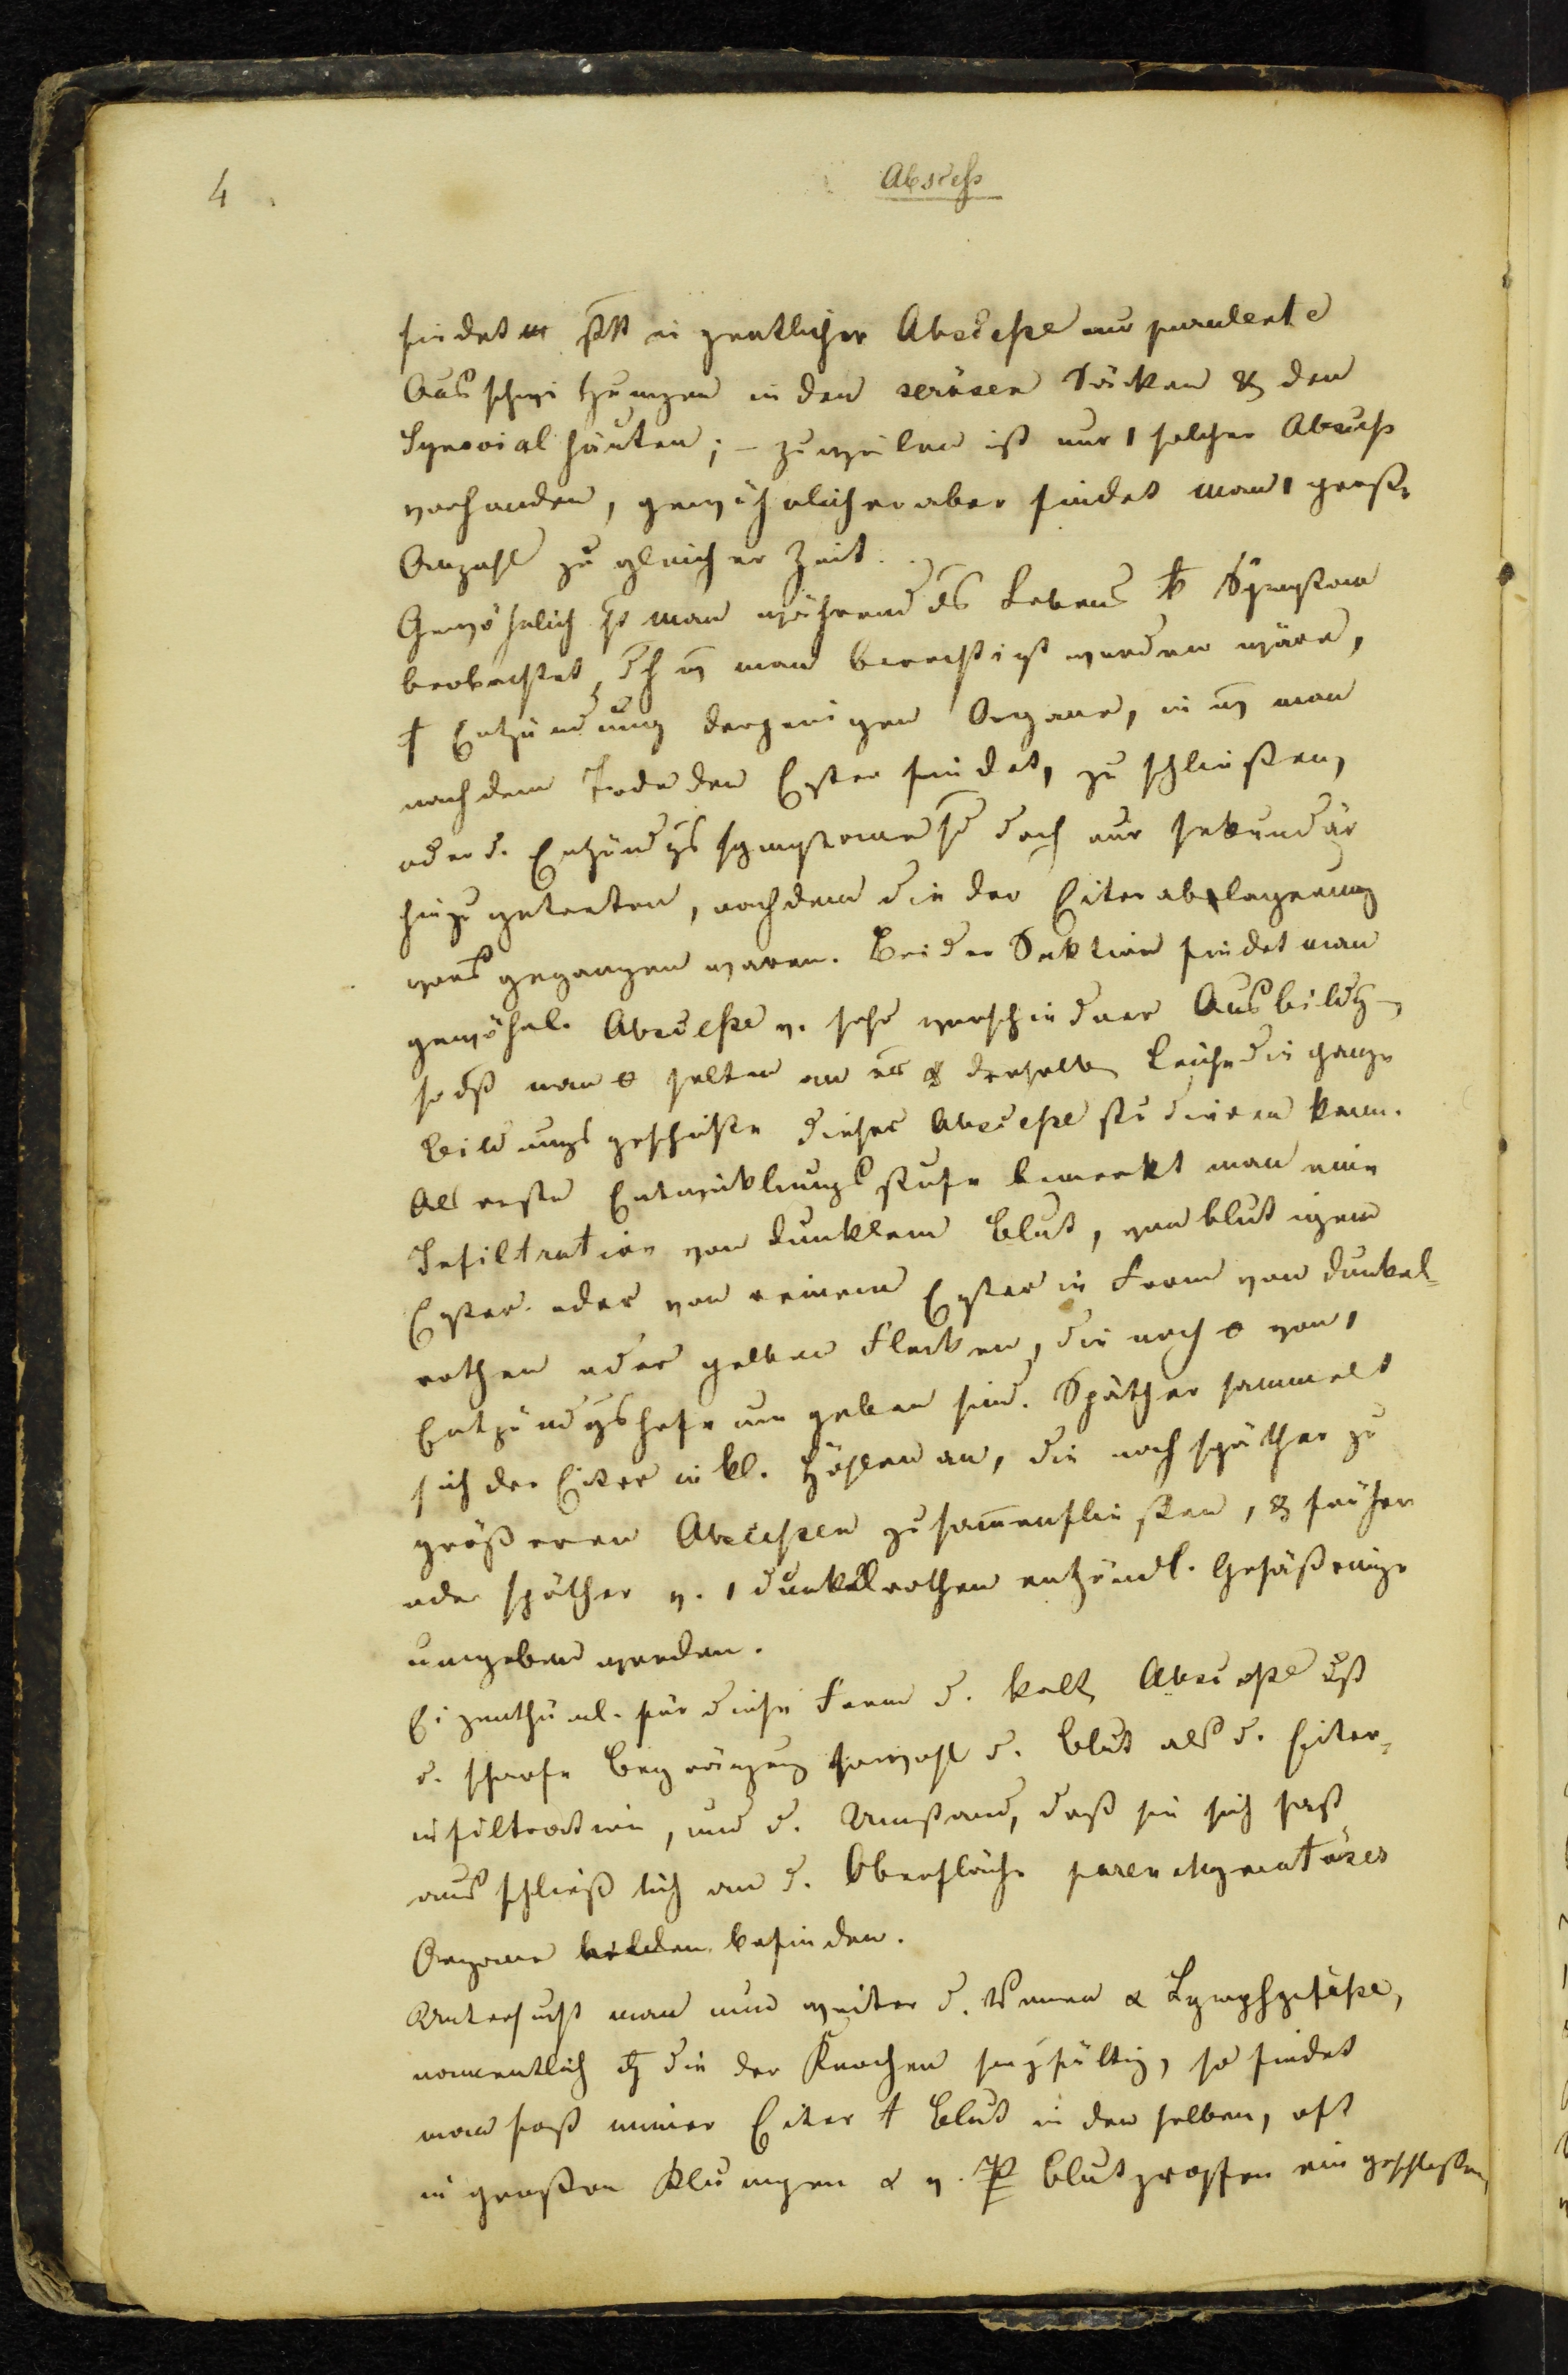 4
Abscess
findet statt eigentlicher Abscesse nur purulente
Ausschwitzungen in den serösen Säcken & den
Synovial häuten; – zuweilen ist nur 1 solcher Abscess
vorhanden, gewöhnlicher aber findet man 1 große
Anzahl zu gleicher Zeit.
Gewöhnlich man während des Lebens Symptome
beobachtet, man berechtigt worden wäre,
Entzündung derjenigen Organe, in man
nach dem Tode den Eyter findet, zu schließen,
oder d. Entzündgs symptome sd doch nur sekundär
hinzugetreten, nachdem die der Eiterablagerung
voraus gegangen waren. Bei der Sektion findet man
gewöhnl. Abscesse v. sehr verschiedner Ausbildg,
so dß man selten an derselben Leiche die ganze
Bildungsgeschichte dieser Abscesse studieren kann.
Als erste Entwicklungsstufe bemerkt man eine
Infiltration von dunklem Blut, von blutigem
Eyter oder von reinem Eyter in Form von dunkel-
rothen oder gelben Flecken, die noch von 1
Entzündgshofe umgeben sind. Späther sammelt
sich der Eiter in kl. Höhlen an, die noch späther zu
größeren Abscessen zusam̄enfließen, & früher
oder späther v. 1 dunkelrothen entzündl. Gefäßringe
umgeben werden.
Eigenthüml. für diese Form d. kalt Abscesse ist
d. scharfe Begränzung sowohl d. Blut als d. Eiter-
infiltration, und d. Umstand, daß sie sich fast
ausschließlich an d. Oberfläche parenchymatöser
Organe befinden.
Untersucht man nun weiter d. Venen & Lymphgefäße,
namentlich die der Knochen sorgfältig, so findet
man fast immer Eiter † Blut in denselben, oft
in großen Klumpen & v. Blutpropfen eingeschlossen,